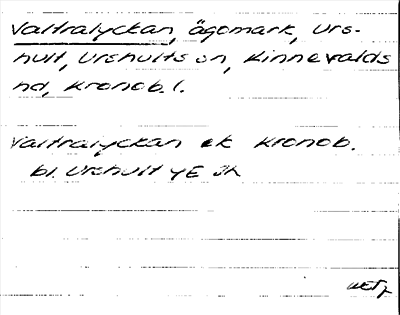 Valtralyckan, ägomark, Urs-
hult, Urshults sn, Kinnevalds
hd, Kronob. l.
Valtralyckan ek Kronob.
bl. Urshult